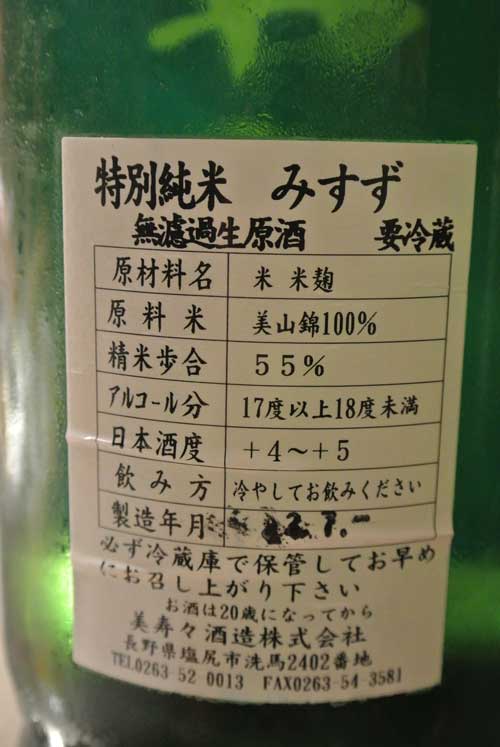 特別純米 みすず
無濾過生原酒 要冷蔵
原材料名 米 米麹
原料米 美山錦100%
精米歩合 55%
アルコール分 17度以上18度未満
日本酒度 +4〜+5
飲み方 冷やしてお飲みください
製造年月 22.7.-
必ず冷蔵庫で保管してお早め
にお召し上がり下さい
お酒は20歳になってから
美寿々酒造株式会社
長野県塩尻市洗馬2402番地
TEL0263-52 0013 FAX0263-54-3581